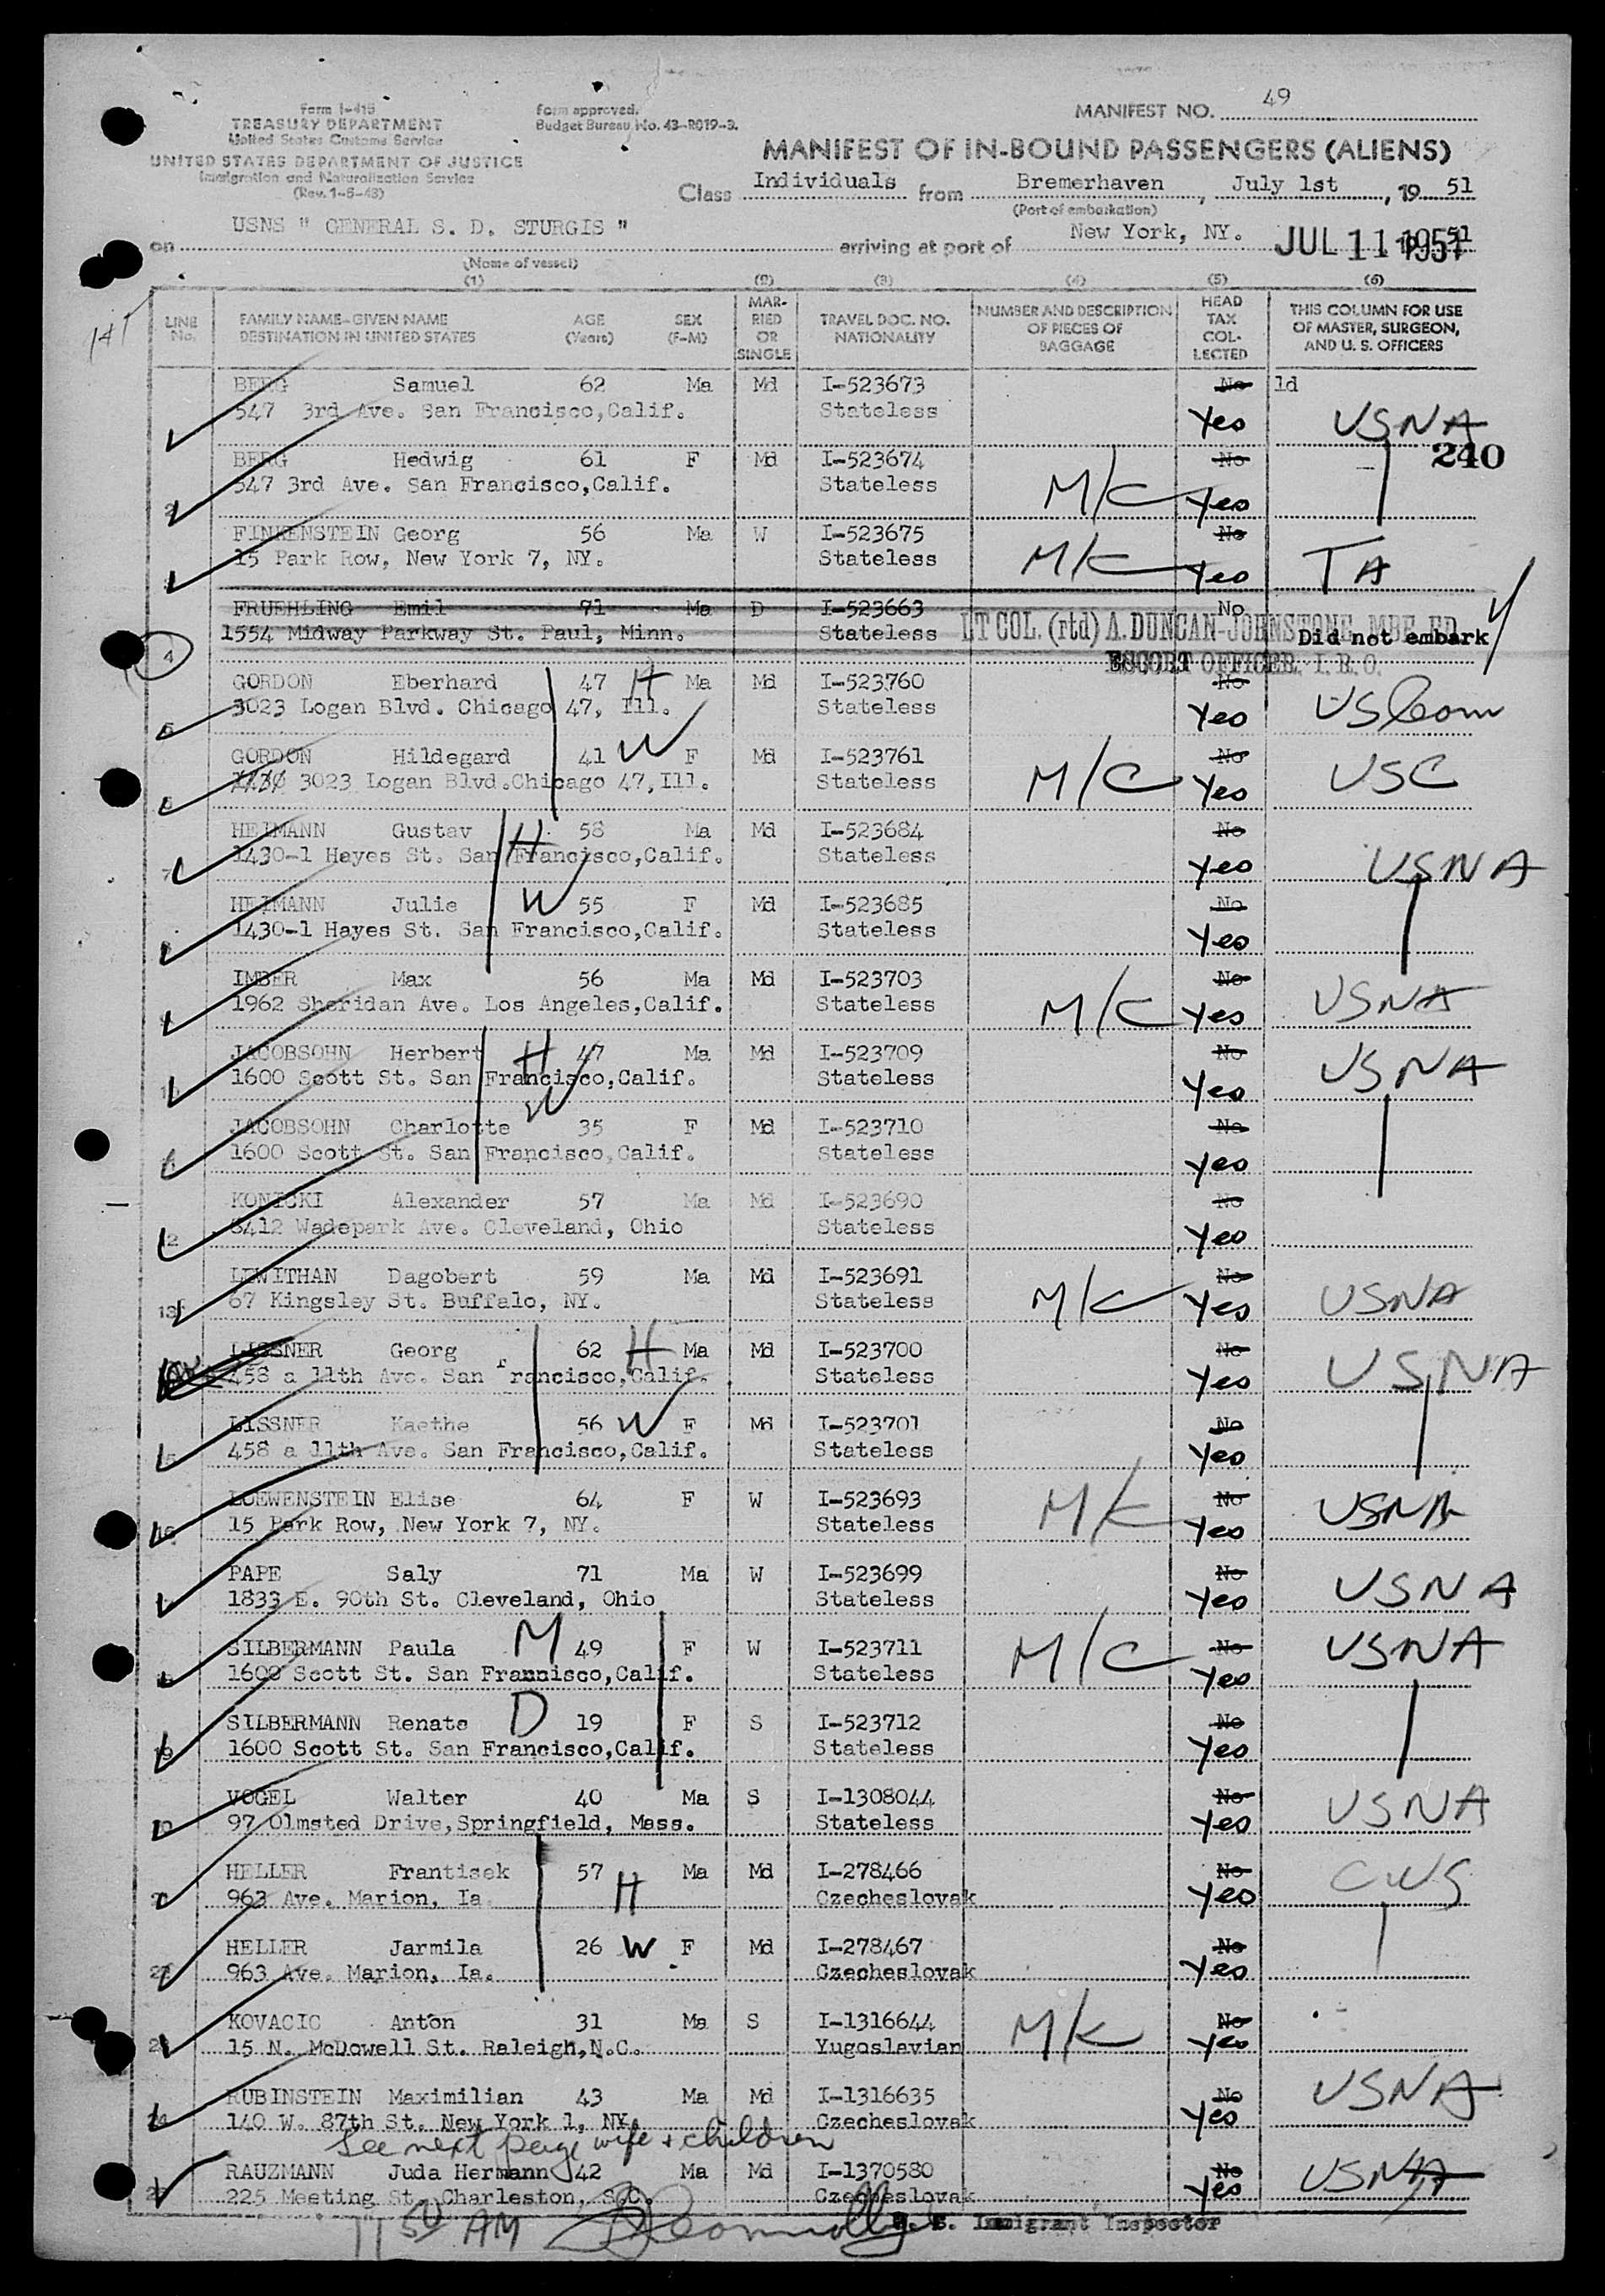 Form I-415
TREASURY DEPARTMENT
United States Customs Service
UNITED STATES DEPARTMENT OF JUSTICE
Immigration and Naturalization Service
(Rev. 1-5-43)
Form approved.
Budget Bureau No. 43-R019-3.
MANIFEST NO. 49
MANIFEST OF IN-BOUND PASSENGERS (ALIENS)
Class Individuals from Bremerhaven, July 1st, 19 51
(Port of embarkation)
on USNS " GENERAL S. D. STURGIS " arriving at port of New York, NY. JUL 11 1951
(Name of vessel)
(1) (2) (3) (4) (5) (6)
LINE No. FAMILY NAME-GIVEN NAME DESTINATION IN UNITED STATES AGE (Years) SEX (F-M) MARRIED OR SINGLE TRAVEL DOC. NO. NATIONALITY NUMBER AND DESCRIPTION OF PIECES OF BAGGAGE HEAD TAX COLLECTED THIS COLUMN FOR USE OF MASTER, SURGEON, AND U. S. OFFICERS
BERG Samuel 62 Ma Md I-523673 No ld
547 3rd Ave. San Francisco,Calif. Stateless Yes USNA
240
BERG Hedwig 61 F Md I-523674 No
2 547 3rd Ave. San Francisco,Calif. Stateless M/C Yes
FINKENSTEIN Georg 56 Ma W I-523675 No
15 Park Row, New York 7, NY. Stateless M/C Yes TA
FRUEHLING Emil 71 Ma D I-523663 No
4 1554 Midway Parkway St. Paul, Minn. Stateless Did not embark
LT COL. (rtd) A. DUNCAN-JOHNSTONE, MBE, ED
ESCORT OFFICER. I. R. O.
GORDON Eberhard 47 H Ma Md I-523760 No
5 3023 Logan Blvd. Chicago 47, Ill. Stateless Yes US Com
GORDON Hildegard 41 W F Md I-523761 No
6 3023 Logan Blvd.Chicago 47,Ill. Stateless M/C Yes USC
HEIMANN Gustav H 58 Ma Md I-523684 No
7 1430-1 Hayes St. San Francisco,Calif. Stateless Yes USNA
HEIMANN Julie W 55 F Md I-523685 No
1430-1 Hayes St. San Francisco,Calif. Stateless Yes
IMBER Max 56 Ma Md I-523703 No
1962 Sheridan Ave. Los Angeles,Calif. Stateless M/C Yes USNA
JACOBSOHN Herbert H 47 Ma Md I-523709 No
1600 Scott St. San Francisco,Calif. Stateless Yes USNA
W
JACOBSOHN Charlotte 35 F Md I-523710 No
1600 Scott St. San Francisco,Calif. Stateless Yes
KONICKI Alexander 57 Ma Md I-523690 No
12 8412 Wadepark Ave. Cleveland, Ohio Stateless Yes
LEWITHAN Dagobert 59 Ma Md I-523691 No
13 67 Kingsley St. Buffalo, NY. Stateless M/C Yes USNA
LISSNER Georg 62 H Ma Md I-523700 No
458 a 11th Ave. San Francisco,Calif. Stateless Yes USNA
LISSNER Kaethe 56 W F Md I-523701 No
458 a 11th Ave. San Francisco,Calif. Stateless Yes
LOEWENSTEIN Elise 64 F W I-523693 No
16 15 Park Row, New York 7, NY. Stateless M/C Yes USNA
PAPE Saly 71 Ma W I-523699 No
1833 E. 90th St. Cleveland, Ohio Stateless Yes USNA
SILBERMANN Paula M 49 F W I-523711 No
1600 Scott St. San Frannisco,Calif. Stateless M/C Yes USNA
SILBERMANN Renate D 19 F S I-523712 No
19 1600 Scott St. San Francisco,Calif. Stateless Yes
VOGEL Walter 40 Ma S I-1308044 No
97 Olmsted Drive,Springfield, Mass. Stateless Yes USNA
HELLER Frantisek 57 Ma Md I-278466 No
963 Ave. Marion, Ia. H Czecheslovak Yes CWS
HELLER Jarmila 26 W F Md I-278467 No
963 Ave. Marion, Ia. Czecheslovak Yes
KOVACIC Anton 31 Ma S I-1316644 No
15 N. McDowell St. Raleigh,N.C. Yugoslavian M/C Yes
RUBINSTEIN Maximilian 43 Ma Md I-1316635 No USNA
140 W. 87th St. New York 1, NY. Czecheslovak Yes
See next page wife + children
RAUZMANN Juda Hermann 42 Ma Md I-1370580 No USNA
225 Meeting St. Charleston, S.C. Czecheslovak Yes
11 50 AM U. S. Immigrant Inspector